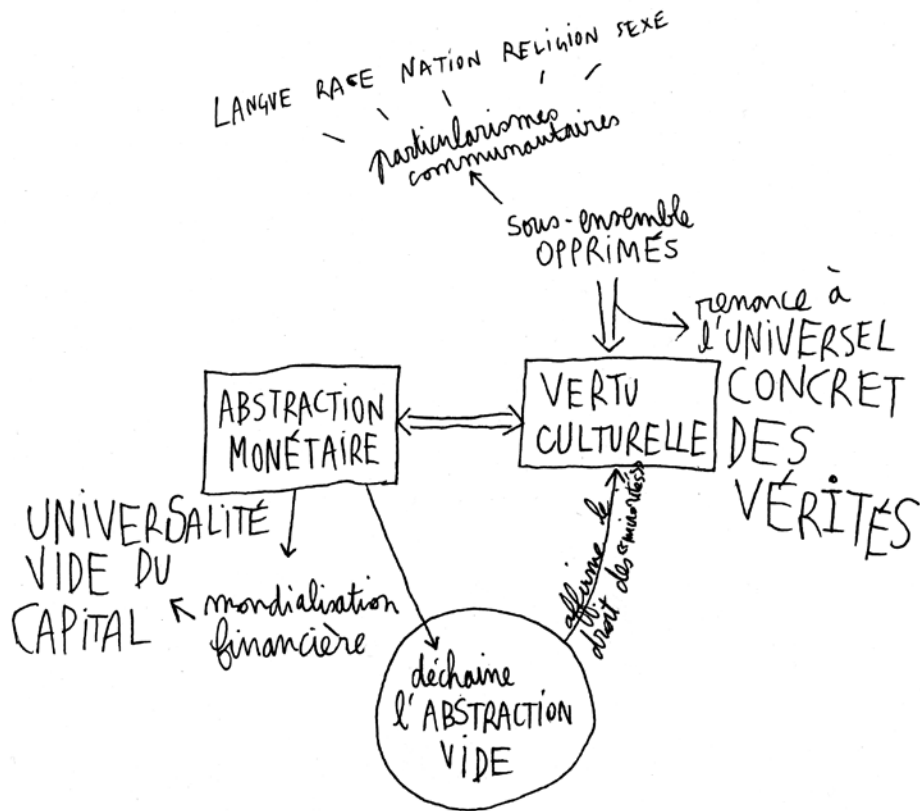 LANGUE RACE NATION RELIGION SEXE
particularismes
communautaires
sous-ensemble
OPPRIMÉS
renonce à
l'UNIVERSEL
CONCRET
DES
VÉRITÉS
ABSTRACTION
MONÉTAIRE
VERTU
CULTURELLE
UNIVERSALITÉ
VIDE DU
CAPITAL
mondialisation
financière
affirme le
droit des «minorités»
déchaine
l'ABSTRACTION
VIDE